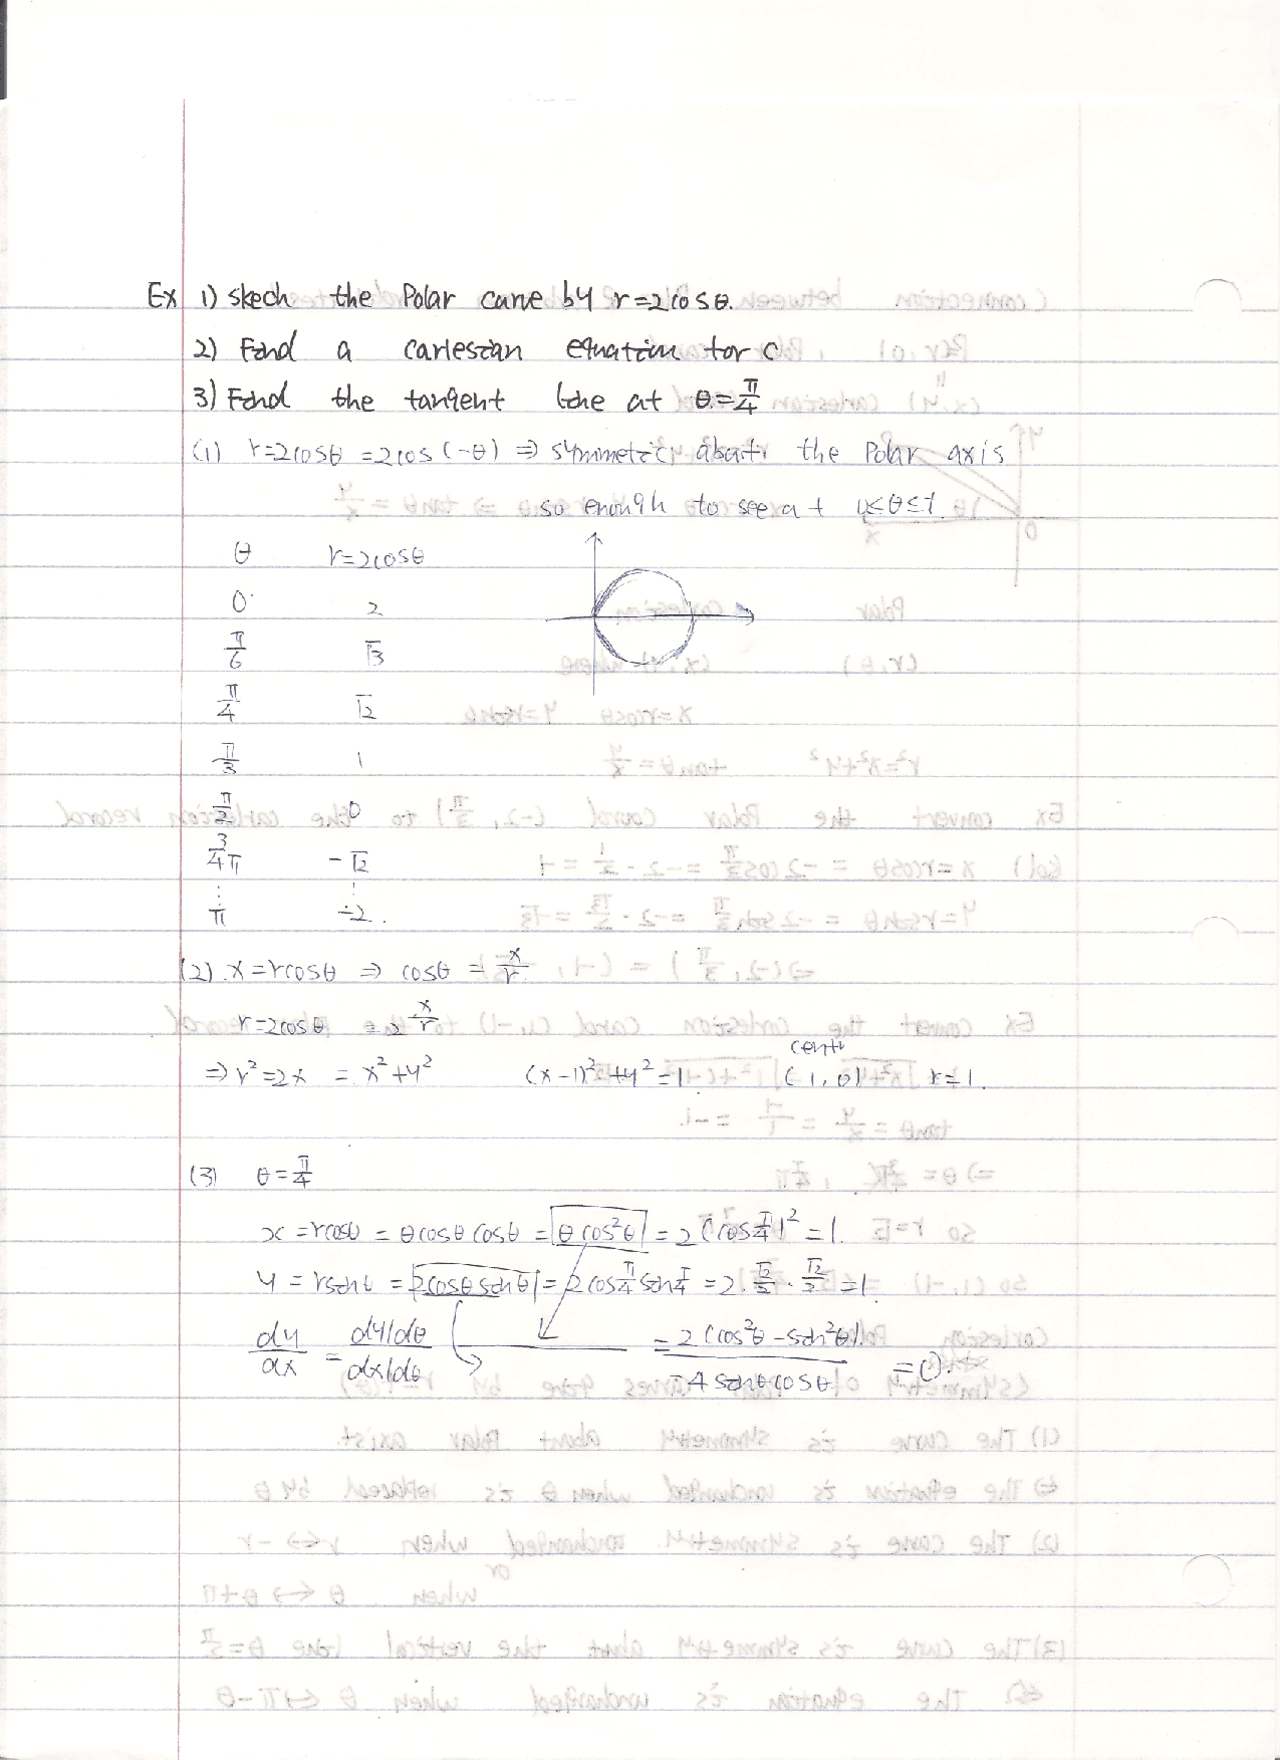 Ex 1) skech the Polar curve by r=2cosθ.
2) Find a cartesian equation for C
3) Find the tangent line at θ=π/4
(1) r=2cosθ =2cos(-θ) ⇒ symmetric about the Polar axis
so enough to see at ≤θ≤
θ r=2cosθ
0 2
π/6 √3
π/4 √2
π/3 1
π/2 0
3/4π -√2
⋮ ⋮
π -2.
(2) x=rcosθ ⇒ cosθ = x/r
r=2cosθ = 2 x/r
⇒ r²=2x = x²+y² (x-1)²+y²=1 (1,0) r=1.
(3) θ=π/4
x =rcosθ = θcosθ cosθ = θcos²θ = 2(cosπ/4)² =1.
y = rsinθ = 2cosθ sinθ = 2cosπ/4 sinπ/4 = 2 √2/2 · √2/2 =1.
dy/dx = dy/dθ / dx/dθ = 2(cos²θ -sin²θ) / -4sinθcosθ =0.